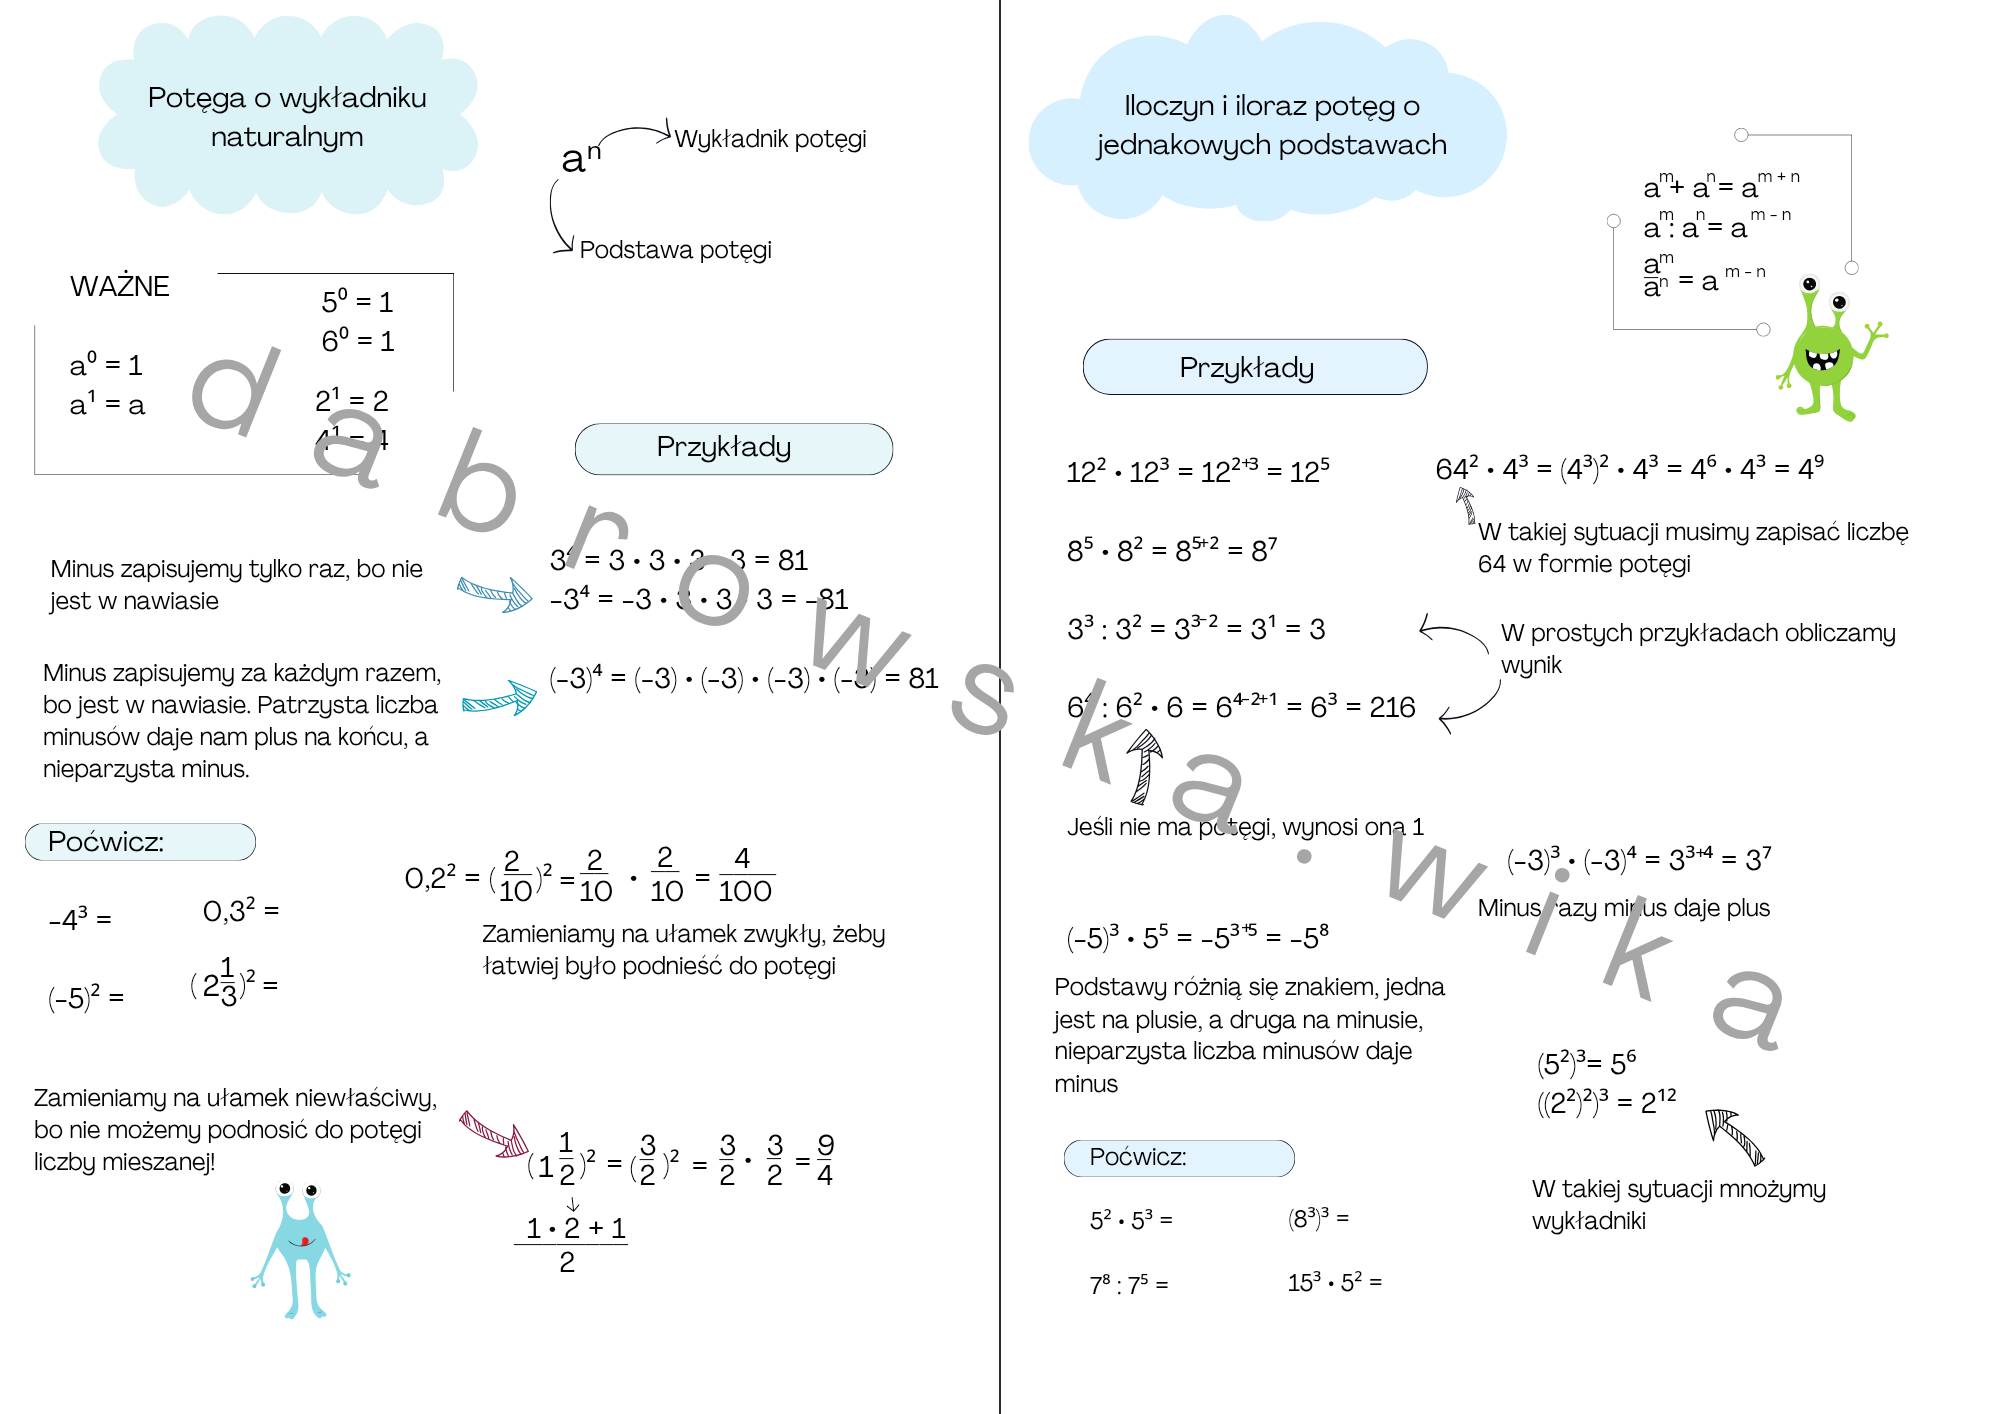 Potęga o wykładniku
naturalnym
aⁿ
Wykładnik potęgi
Podstawa potęgi
WAŻNE
a⁰ = 1
a¹ = a
5⁰ = 1
6⁰ = 1
2¹ = 2
4¹ = 4
Przykłady
Minus zapisujemy tylko raz, bo nie
jest w nawiasie
3⁴ = 3 • 3 • 3 • 3 = 81
-3⁴ = -3 • 3 • 3 • 3 = -81
Minus zapisujemy za każdym razem,
bo jest w nawiasie. Patrzysta liczba
minusów daje nam plus na końcu, a
nieparzysta minus.
(-3)⁴ = (-3) • (-3) • (-3) • (-3) = 81
Poćwicz:
-4³ =
0,3² =
(-5)² =
(2 1/3)² =
0,2² = (2/10)² = 2/10 • 2/10 = 4/100
Zamieniamy na ułamek zwykły, żeby
łatwiej było podnieść do potęgi
Zamieniamy na ułamek niewłaściwy,
bo nie możemy podnosić do potęgi
liczby mieszanej!
(1 1/2)² = (3/2)² = 3/2 • 3/2 = 9/4
1 • 2 + 1
2
Iloczyn i iloraz potęg o
jednakowych podstawach
aᵐ + aⁿ = aᵐ⁺ⁿ
aᵐ : aⁿ = aᵐ⁻ⁿ
aᵐ/aⁿ = aᵐ⁻ⁿ
Przykłady
12² • 12³ = 12²⁺³ = 12⁵
64² • 4³ = (4³)² • 4³ = 4⁶ • 4³ = 4⁹
W takiej sytuacji musimy zapisać liczbę
64 w formie potęgi
8⁵ • 8² = 8⁵⁺² = 8⁷
3³ : 3² = 3³⁻² = 3¹ = 3
W prostych przykładach obliczamy
wynik
6⁴ : 6² • 6 = 6⁴⁻²⁺¹ = 6³ = 216
Jeśli nie ma potęgi, wynosi ona 1
(-3)³ • (-3)⁴ = 3³⁺⁴ = 3⁷
Minus razy minus daje plus
(-5)³ • 5⁵ = -5³⁺⁵ = -5⁸
Podstawy różnią się znakiem, jedna
jest na plusie, a druga na minusie,
nieparzysta liczba minusów daje
minus
(5²)³= 5⁶
((2²)²)³ = 2¹²
W takiej sytuacji mnożymy
wykładniki
Poćwicz:
5² • 5³ =
(8³)³ =
7⁸ : 7⁵ =
15³ • 5² =
dabrowska.wika